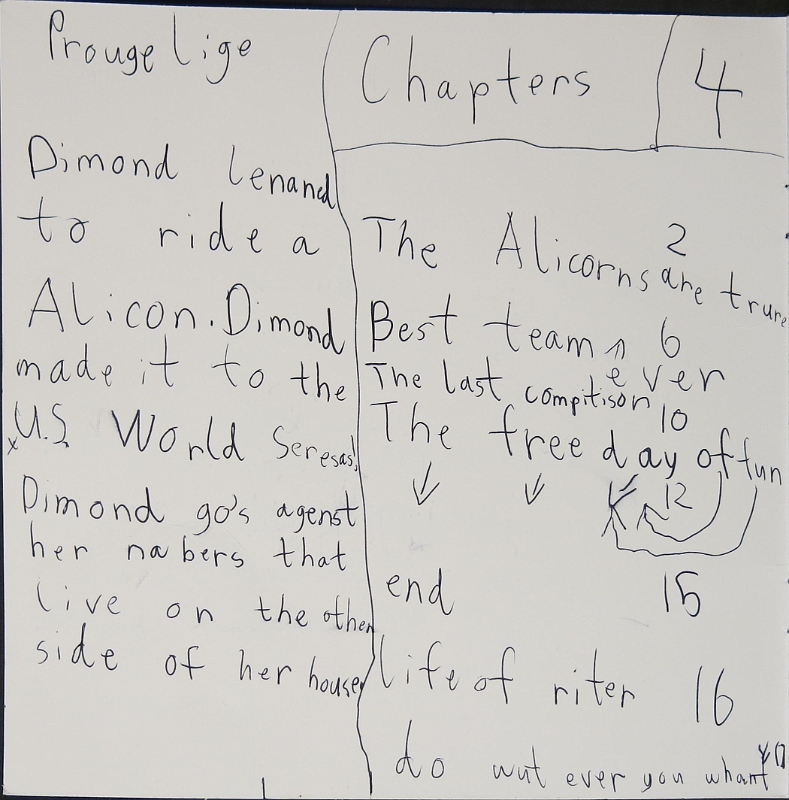 Prouge Lige
Dimond lenand
to ride a
Alicon. Dimond
made it to the
U.S. World Seresas!
Dimond go's agenst
her nabers that
live on the other
side of her house
Chapters 4
The Alicorns are trure 2
Best team ever 6
The last compitison 10
The free day of fun 12
end 15
life of riter 16
do wut ever you whant